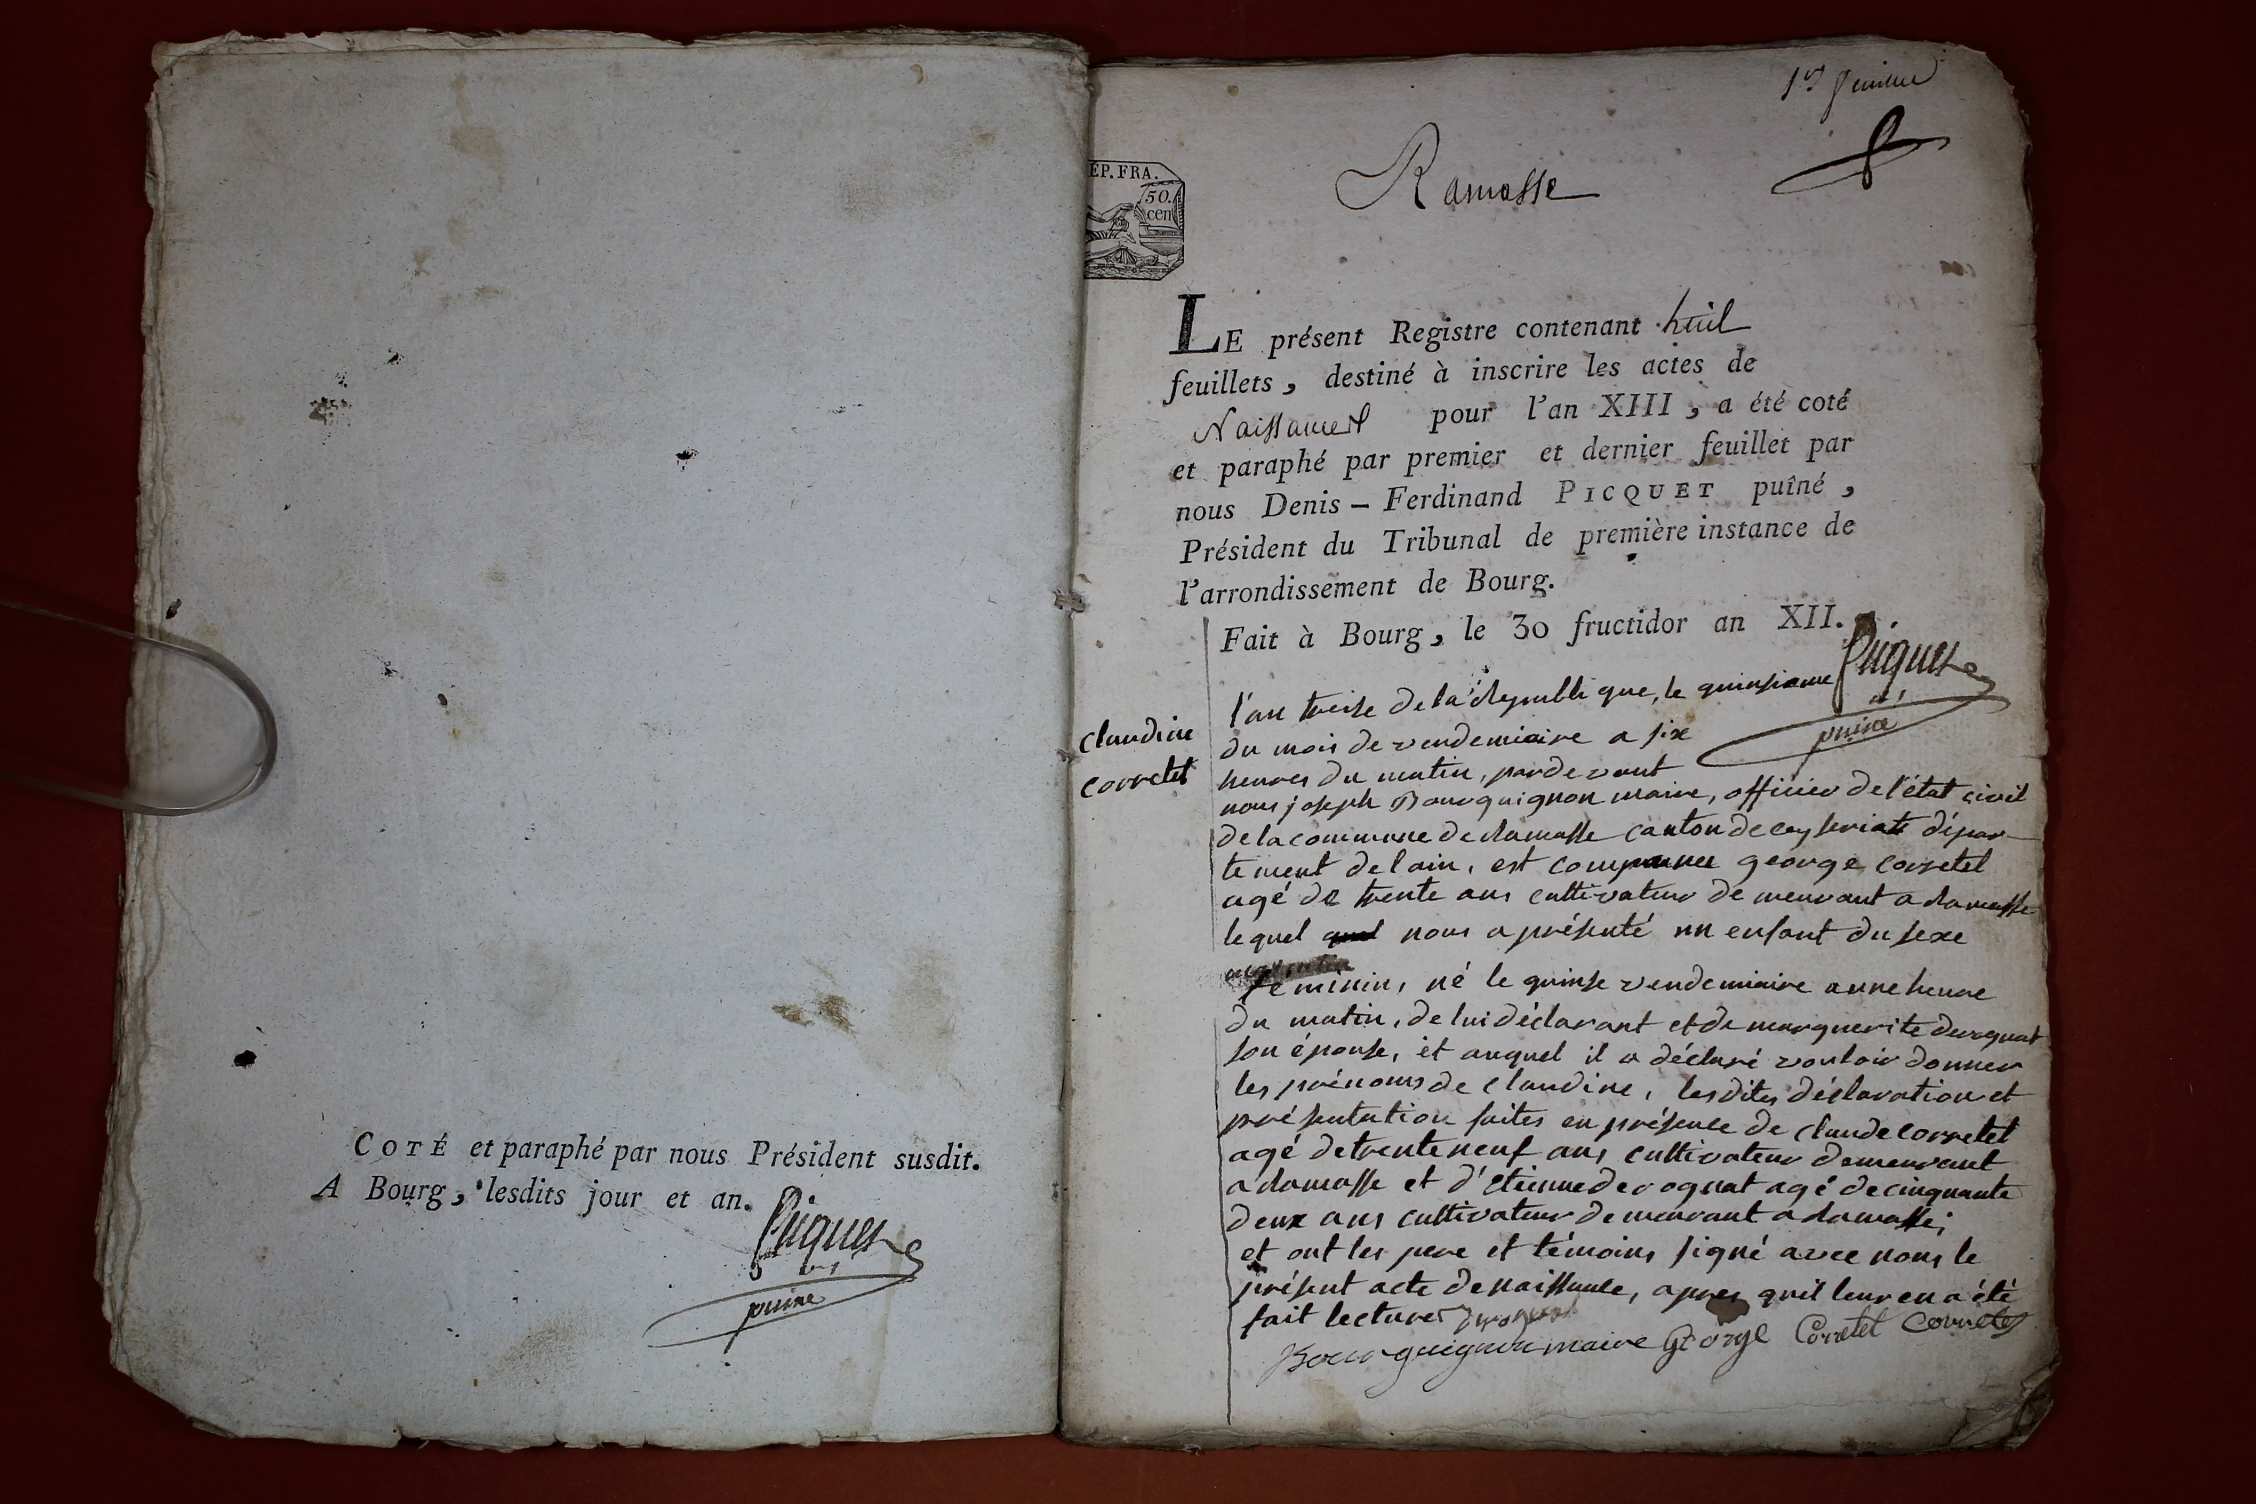 COTÉ et paraphé par nous Président susdit.
A Bourg, lesdits jour et an.
Picquet
puiné
1er feuillet
RÉP. FRA.
50.
cen
Ramasse
LE présent Registre contenant huit
feuillets, destiné à inscrire les actes de
Naissances pour l'an XIII, a été coté
et paraphé par premier et dernier feuillet par
nous Denis-Ferdinand PICQUET puîné,
Président du Tribunal de première instance de
l'arrondissement de Bourg.
Fait à Bourg, le 30 fructidor an XII.
Picquet
puiné
claudine
corretet
l'an treise de la Republique, le quinsieme
du mois de vendemiaire a six
heures du matin, pardevant
nous joseph Bourguignon maire, officier de l'état civil
de la commune de Ramasse canton de ceyseriat dépar-
tement de l'ain, est comparu george corretet
agé de trente ans cultivateur demeurant a Ramasse
lequel nous a présenté un enfant du sexe
feminin, né le quinse vendemiaire a une heure
du matin, de lui déclarant et de marguerite durognat
son épouse, et auquel il a déclaré vouloir donner
les prénoms de claudine, lesdites déclaration et
présentation faites en présence de claude corretet
agé de trente neuf ans cultivateur demeurant
a Ramasse et d'etienne derognat agé de cinquante
deux ans cultivateur demeurant a Ramasse;
et ont les pere et témoins signé avec nous le
présent acte de naissance, apres qu'il leur en a été
fait lecture durognat
Bourguignon maire George Corretet Corretet